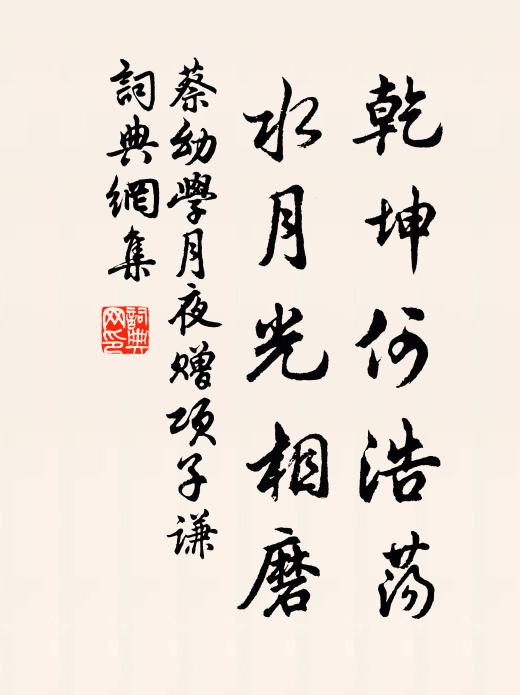 乾坤何浩蕩
水月光相磨
蔡幼學月夜贈項子謙
詞典網集
詞典网印